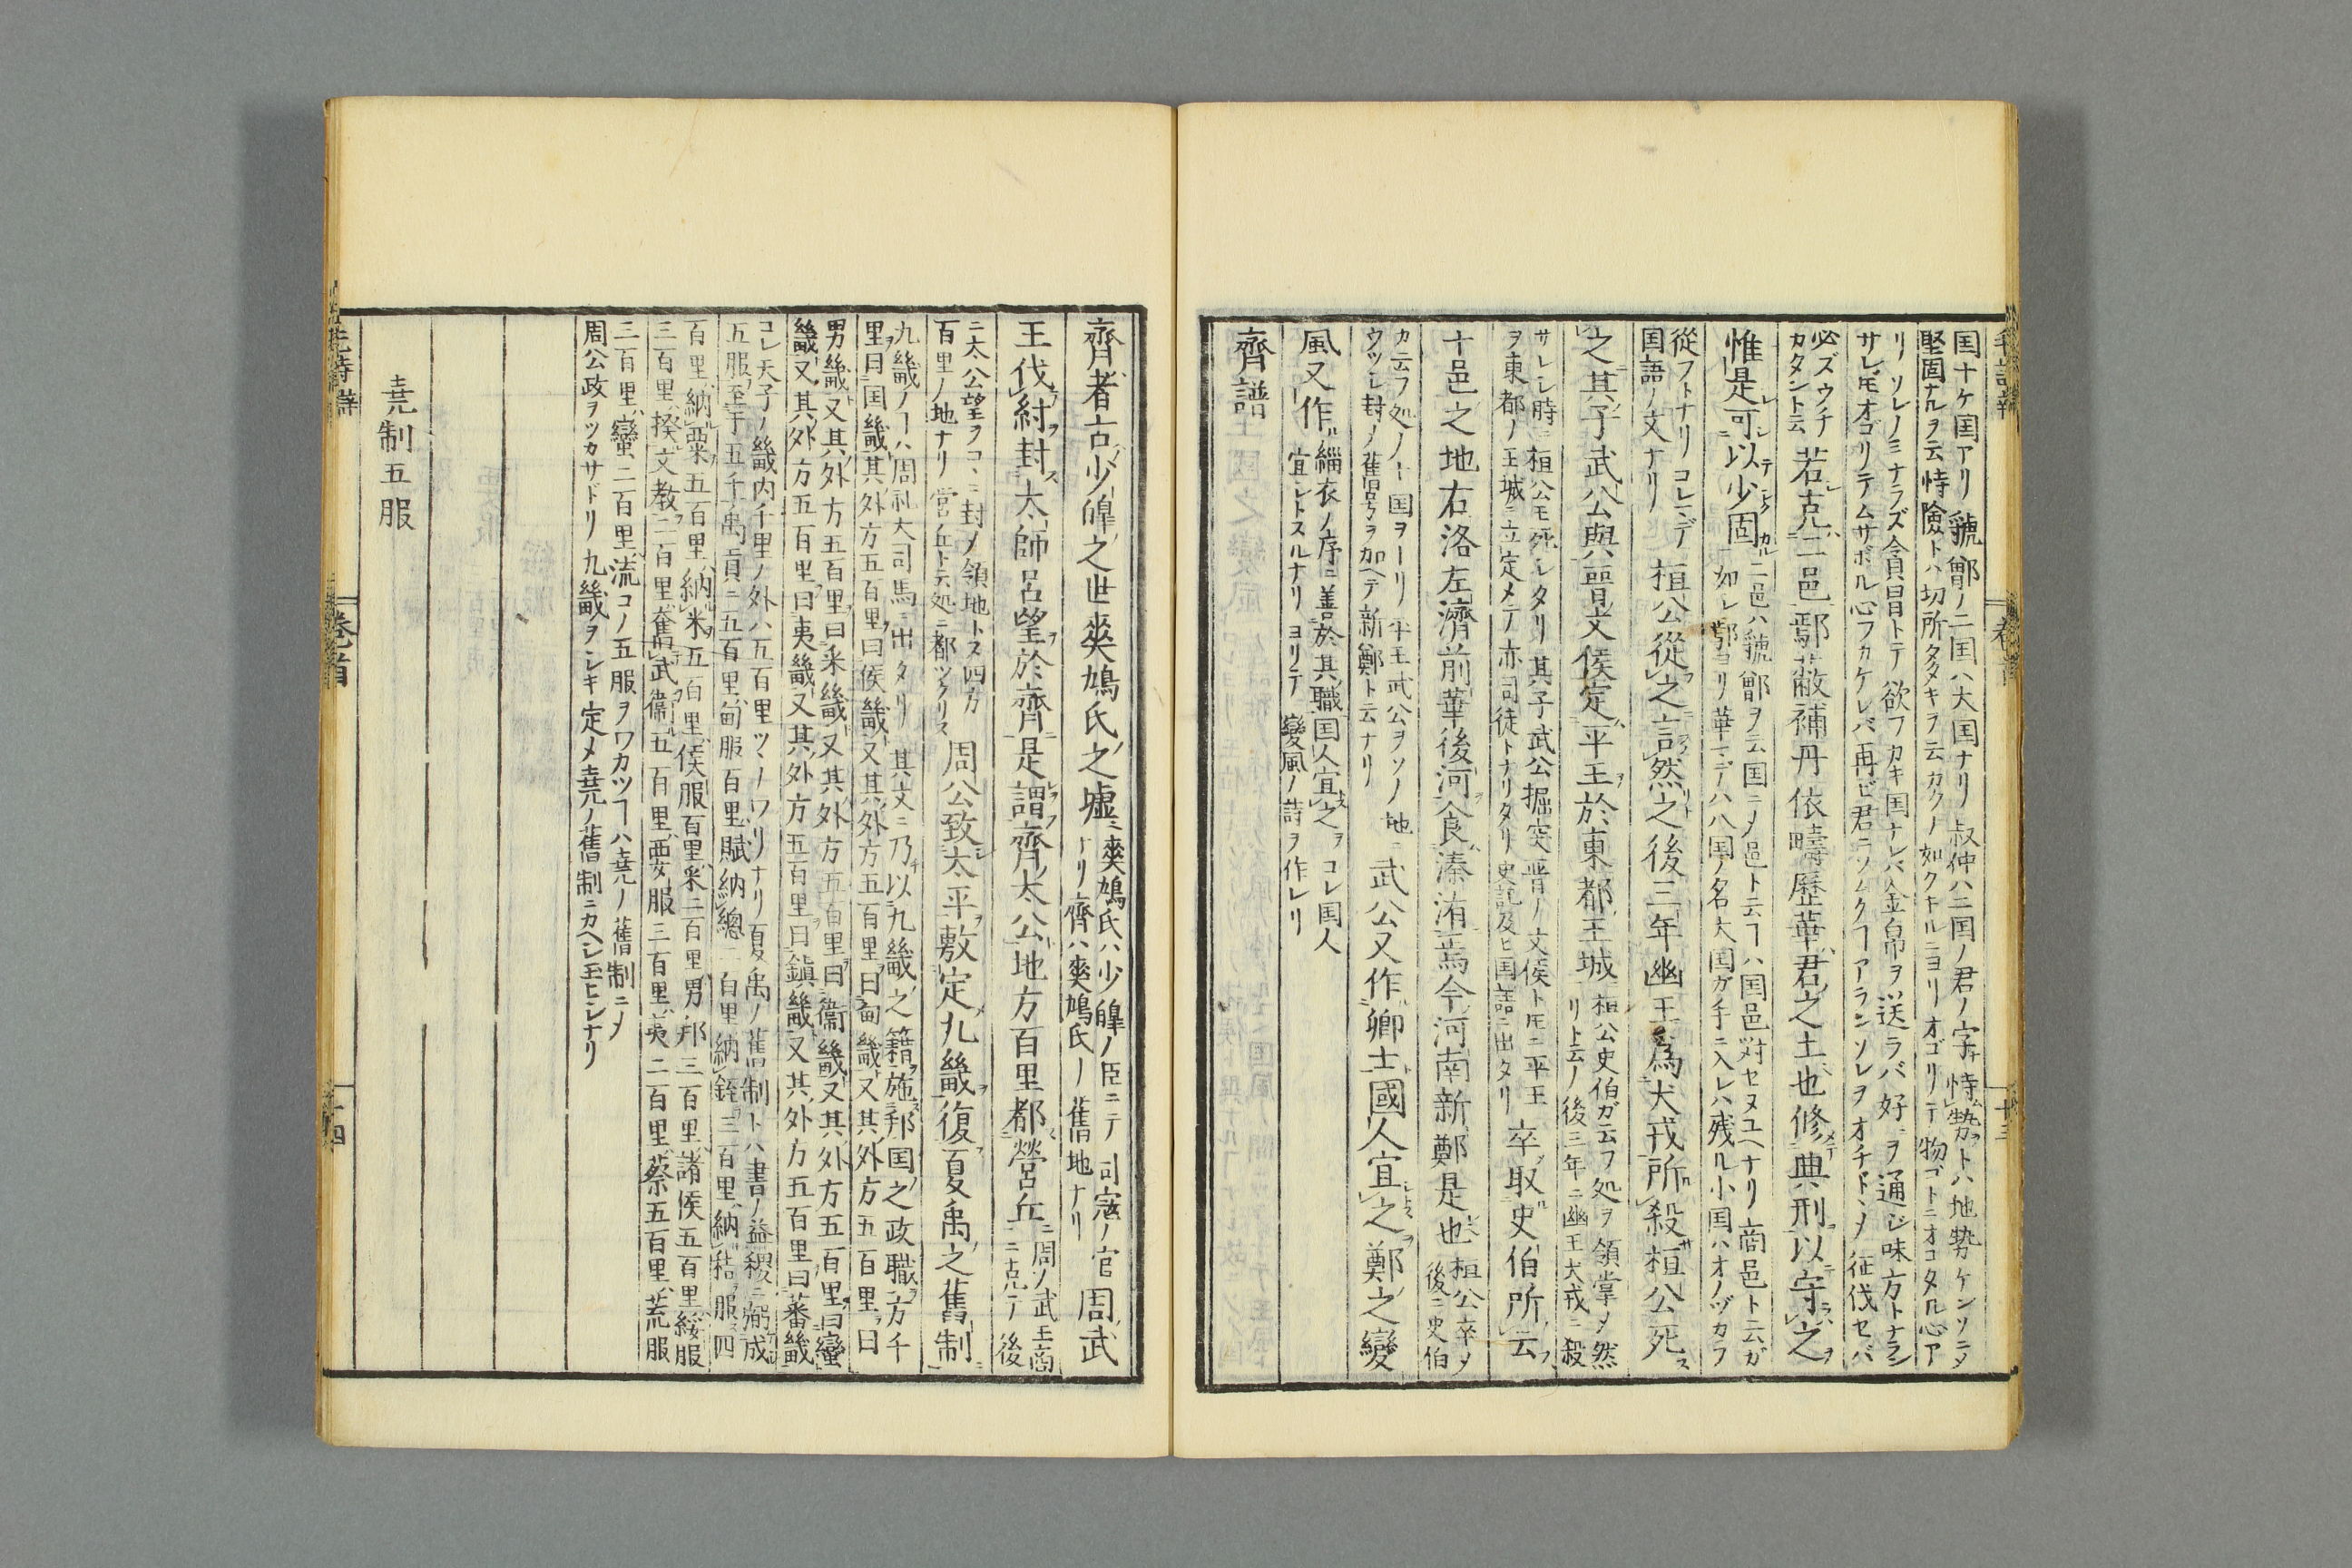 国十ケ国アリ 虢鄶ノ二国ハ大国ナリ 叔仲ハ二国ノ君ノ字 恃勢トハ地勢ケンソニメ
堅固ナルヲ云 恃險トハ切所多キヲ云 カクノ如クナルニヨリ オゴリテ 物ゴトニオコタル心ア
リ ソレノミナラズ 貪冒トテ 欲フカキ国ナレバ 金帛ヲ送ラバ 好ヲ通ジ味方トナラン
サレ𪜈オゴリテムサボル心フカケレバ 再ビ君ニソムクヿアラン ソレヲオチドメ 征伐セバ
必ズウチ
カタント云
若克二邑鄢蔽補丹依疇歷華君之土也修典刑以守之
惟是可以少固
二邑ハ虢鄶ヲ云 国ニメ邑ト云ヿハ国邑対セヌユヘナリ 商邑ト云ガ
如レ 鄢ヨリ華マデハ八国ノ名 大国ガ手ニ入レハ残ル小国ハオノヅカラ
從フトナリ コレマデ
国語ノ文ナリ
桓公從之言然之後三年幽王爲犬戎所殺桓公死
之其子武公與晉文侯定平王於東都王城
桓公史伯ガ云フ処ヲ領掌メ然
リト云ノ後三年ニ幽王犬戎ニ殺
サレシ時ニ桓公モ死シタリ 其子武公掘突晋ノ文侯ト𪜈ニ平王
ヲ東都ノ王城ニ立定メテ 亦司徒トナリタリ 史記及ヒ国語ニ出タリ
卒取史伯所云
十邑之地右洛左濟前華後河食溱洧焉今河南新鄭是也
桓公卒メ
後ニ史伯
カ云フ処ノ十国ヲトリ 平王武公ヲソノ地ニ
ウツシ封ノ舊号ヲ加ヘテ新鄭ト云ナリ
武公又作卿士國人宜之鄭之變
風又作
緇衣ノ序ニ善於其職国人宜之 コレ国人
宜シトスルナリ ヨリテ 變風ノ詩ヲ作レリ
齊譜
齊者古少皥之世爽鳩氏之墟
爽鳩氏ハ少皥ノ臣ニテ 司寇ノ官
ナリ 齊ハ爽鳩氏ノ舊地ナリ
周武
王伐紂封太師呂望於齊是謂齊太公地方百里都營丘
周ノ武王商
ニ克テ 後
ニ太公望ヲコヽニ封メ領地トス 四方
百里ノ地ナリ 営丘ト云処ニ都ツクリス
周公致太平敷定九畿復夏禹之舊制
九畿ノヿハ周礼大司馬ニ出タリ 其文ニ乃以九畿之籍施邦国之政職方千
里曰国畿其外方五百里曰侯畿又其外方五百里曰甸畿又其外方五百里曰
男畿又其外方五百里曰采畿又其外方五百里曰衞畿又其外方五百里曰蠻
畿又其外方五百里曰夷畿又其外方五百里曰鎮畿又其外方五百里曰蕃畿
コレ天子ノ畿内千里ノ外ハ五百里ツヽノワリナリ 夏禹ノ舊制トハ書ノ益稷ニ弼成
五服至于五千禹貢ニ五百里甸服百里賦納總二百里納銍三百里納秸服四
百里納粟五百里納米五百里侯服百里采二百里男邦三百里諸侯五百里綏服
三百里揆文教二百里奮武衞五百里要服三百里夷二百里蔡五百里荒服
三百里蠻二百里流コノ五服ヲワカツヿハ堯ノ舊制ニメ
周公政ヲツカサドリ 九畿ヲシキ定メ堯ノ舊制ニカヘシ玉ヒシナリ
堯制五服
毛詩
卷首